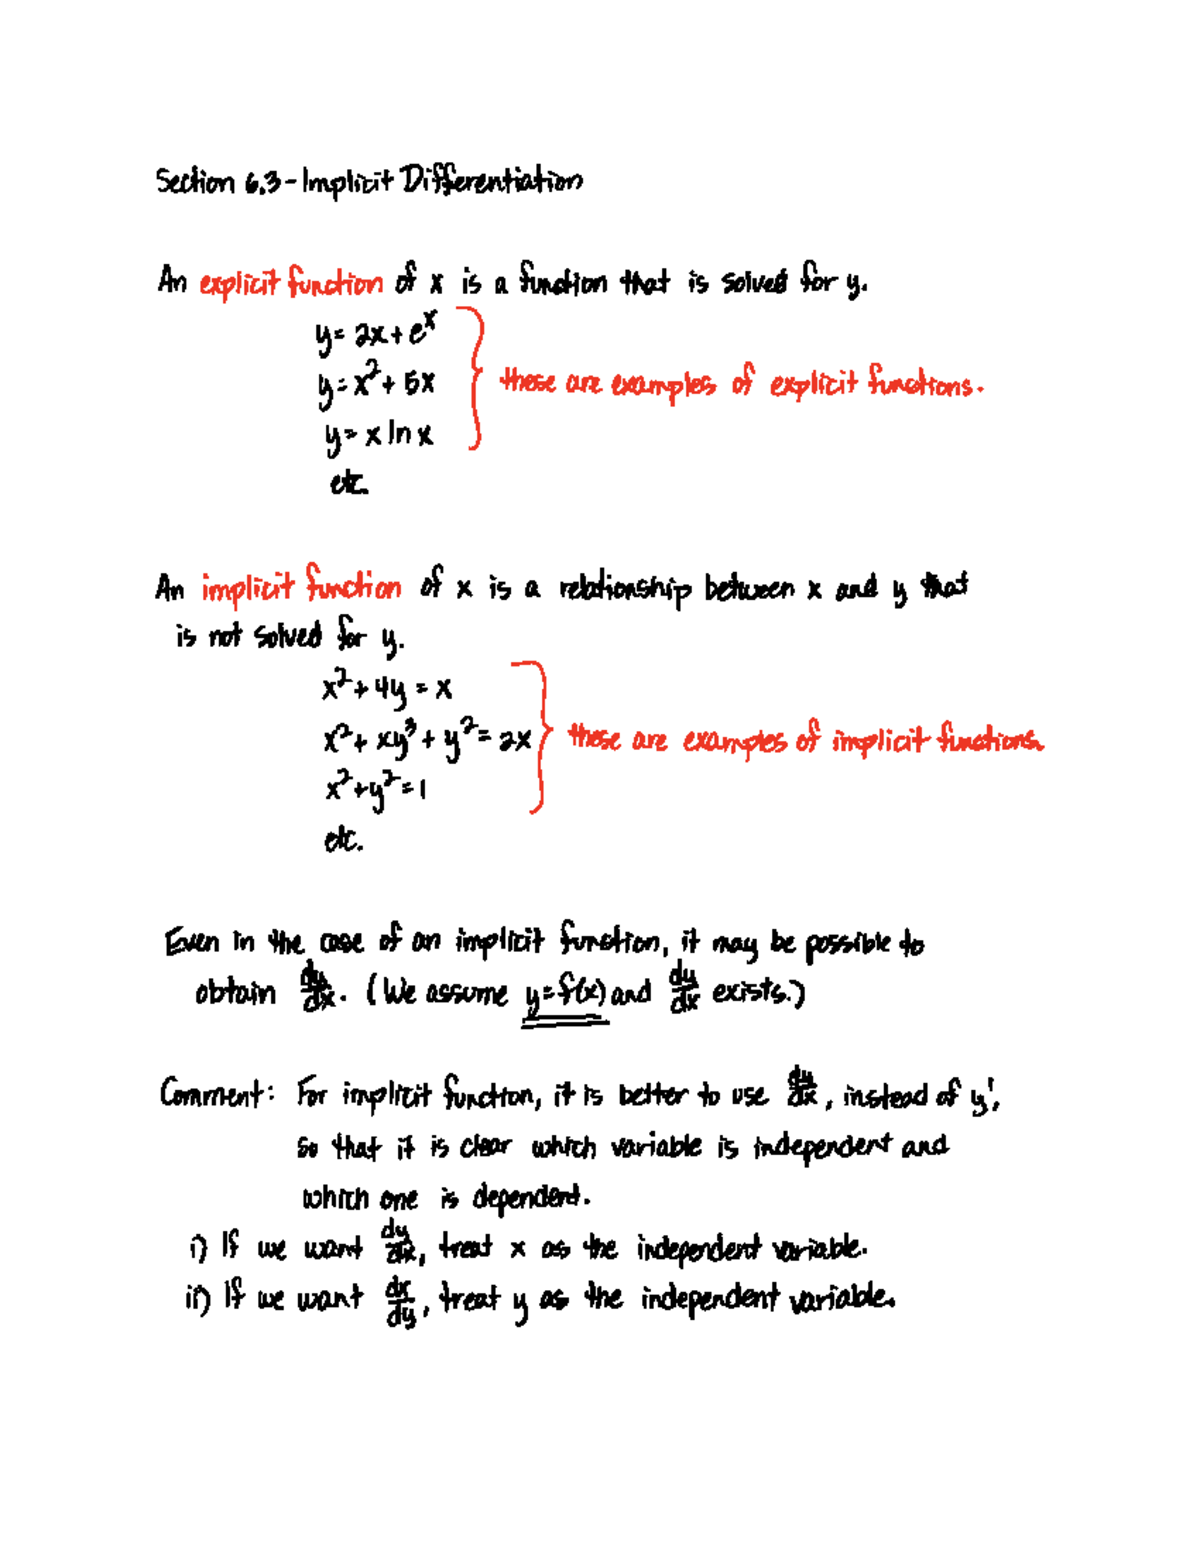 Section 6.3 - Implicit Differentiation
An explicit function of x is a function that is solved for y.
y = 2x + e^x
y = x² + 5x
y = x ln x
etc.
these are examples of explicit functions.
An implicit function of x is a relationship between x and y that
is not solved for y.
x² + 4y = x
x² + xy³ + y² = 2x
x² + y² = 1
etc.
these are examples of implicit functions.
Even in the case of an implicit function, it may be possible to
obtain dy/dx. (We assume y = f(x) and dy/dx exists.)
Comment: For implicit function, it is better to use dy/dx, instead of y',
so that it is clear which variable is independent and
which one is dependent.
i) If we want dy/dx, treat x as the independent variable.
ii) If we want dx/dy, treat y as the independent variable.